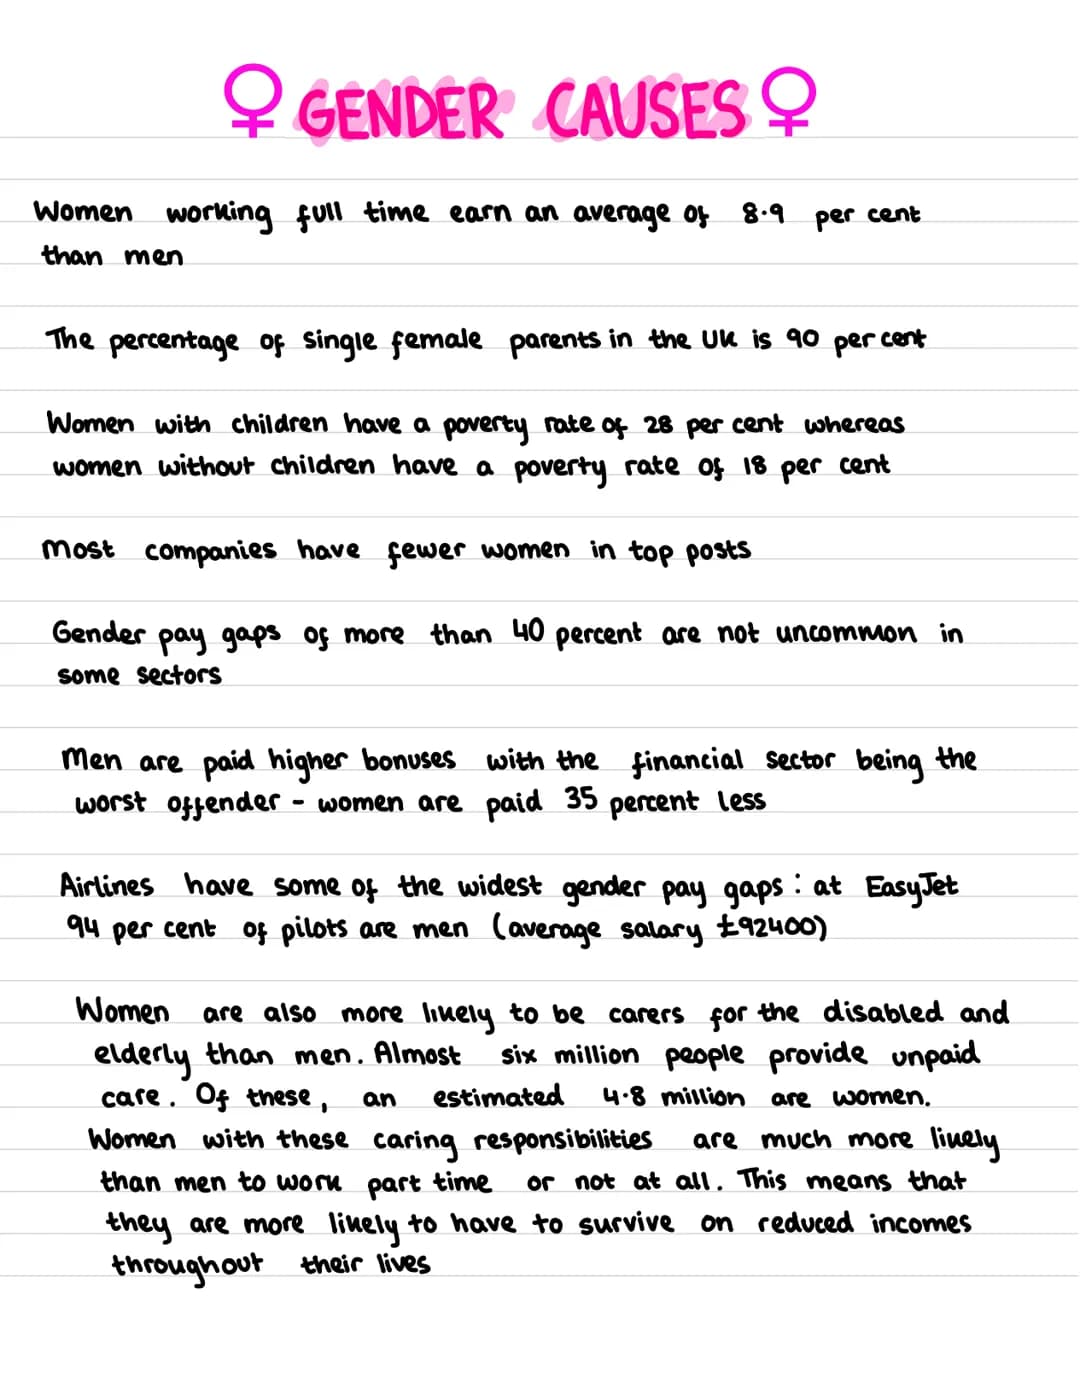 ♀ GENDER CAUSES ♀
Women working full time earn an average of 8.9 per cent
than men
The percentage of single female parents in the UK is 90 per cent
Women with children have a poverty rate of 28 per cent whereas
women without children have a poverty rate of 18 per cent
Most companies have fewer women in top posts
Gender pay gaps of more than 40 percent are not uncommon in
some sectors
Men are paid higher bonuses with the financial sector being the
worst offender - women are paid 35 percent less
Airlines have some of the widest gender pay gaps : at EasyJet
94 per cent of pilots are men (average salary £92400)
Women are also more likely to be carers for the disabled and
elderly than men. Almost six million people provide unpaid
care. Of these, an estimated 4.8 million are women.
Women with these caring responsibilities are much more likely
than men to work part time or not at all. This means that
they are more likely to have to survive on reduced incomes
throughout their lives